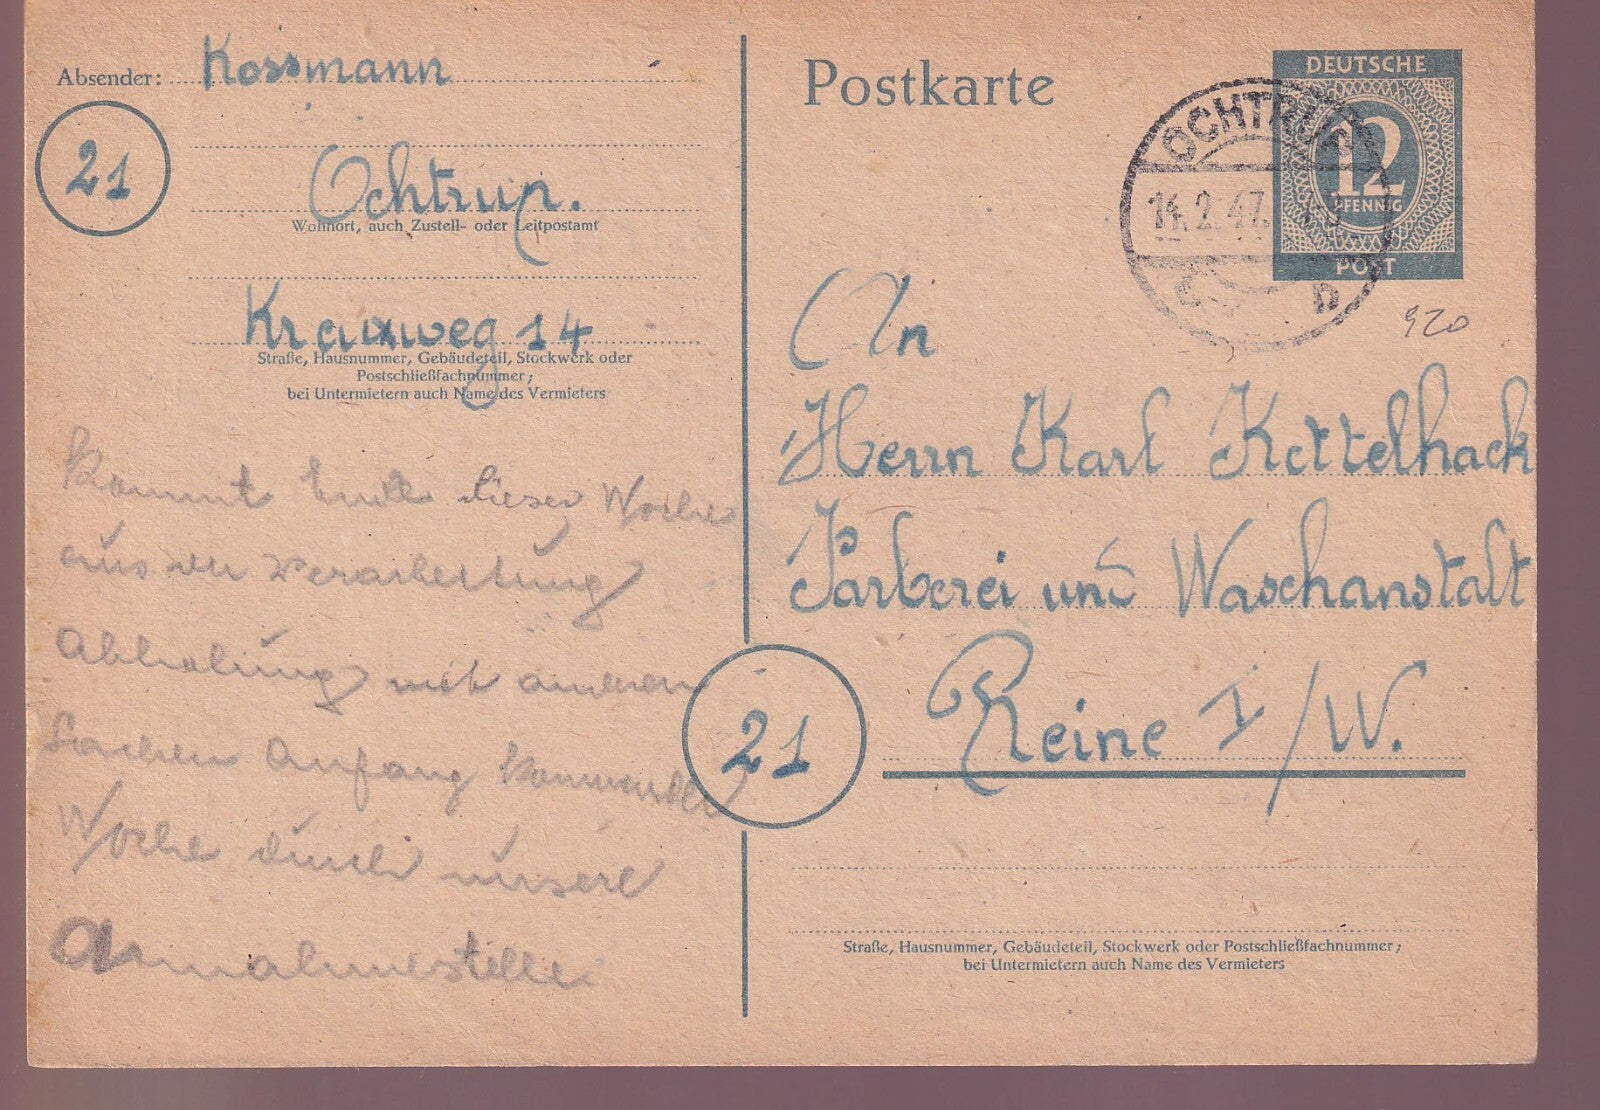 Absender: Kossmann
21
Ochtrup.
Wohnort, auch Zustell- oder Leitpostamt
14
Straße, Hausnummer, Gebäudeteil, Stockwerk oder
Postschließfachnummer;
bei Untermietern auch Name des Vermieters
Kommt Ende dieser Woche
aus der Verarbeitung
Abholung mit anderen
Sachen Anfang kommender
Woche durch unsere
Annahmestelle.
Postkarte
DEUTSCHE
12
PFENNIG
POST
OCHTRUP
14.2.47.
b
920
An
Herrn Karl Kettelhack
Färberei und Waschanstalt
21
Reine I/W.
Straße, Hausnummer, Gebäudeteil, Stockwerk oder Postschließfachnummer;
bei Untermietern auch Name des Vermieters